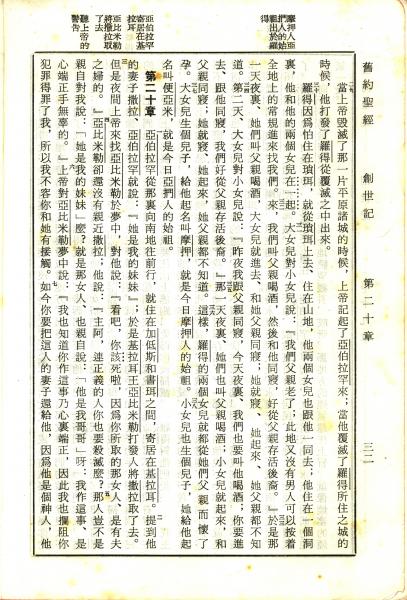 舊約聖經 創世記 第二十章 三二
當上帝毀滅了那一片平原諸城的時候,上帝記起了亞伯拉罕來;當他覆滅了羅得所住之城的
時候,他打發了羅得從覆滅之中出來。
羅得因爲怕住在瑣珥,就從瑣珥上去、住在山地,他兩個女兒也跟他一同去;他住在一個洞
裏,他和他的兩個女兒在一起。大女兒對小女兒說:『我們父親老了;此地又沒有男人可以按着
全地上的常規來找我們。來,我們叫父親喝酒,然後和他同寢,好從父親存活後裔。』於是那
一天夜裏、她們叫父親喝酒;大女兒就進去、和她父親同寢;她就寢、她起來、她父親都不知
道。第二天、大女兒對小女兒說:『昨夜我跟父親同寢,今天夜裏、我們也要叫他喝酒;你要進
去、跟他同寢,我們好從父親存活後裔。』那一天夜裏、她們也叫父親喝酒;小女兒就起來,和
父親同寢,她就寢、她起來、她父親都不知道。這樣,羅得的兩個女兒就都從她們父親而懷了
孕。大女兒生個兒子,給他起名叫摩押,就是今日摩押人的始祖。小女兒也生個兒子,她給他起
名叫便亞米,就是今日亞捫人的始祖。
第二十章 亞伯拉罕從那裏向南地往前行,就住在加低斯和書珥之間,寄居在基拉耳。提到他
的妻子撒拉、亞伯拉罕就說:『她是我的妹妹』;於是基拉耳王亞比米勒打發人將撒拉取了去。
但是夜間上帝來找亞比米勒於夢中,對他說:『看吧,你該死啦,因爲你所取的那女人、是有夫
之婦的。』亞比米勒却還沒有親近撒拉;他說:『主阿,連正義的人你也要殺滅麼?那人豈不是
親自對我說,「她是我的妹妹」麼?就是那女人、也親自說:「他是我哥哥」呀;我作這事、是
心端正手無辜的。』上帝對亞比米勒夢中說:『我也知道你作這事乃心裏端正,因此我也攔阻你
犯罪得罪了我,所以我不容你和她有接觸。如今你要把這人的妻子還給他,因爲他是個神人,他
摩押人亞
捫人的始
祖出於羅
得
亞伯拉罕
寄居在基
拉耳
亞比米勒
將撒拉取
了去
聽上帝的
警告